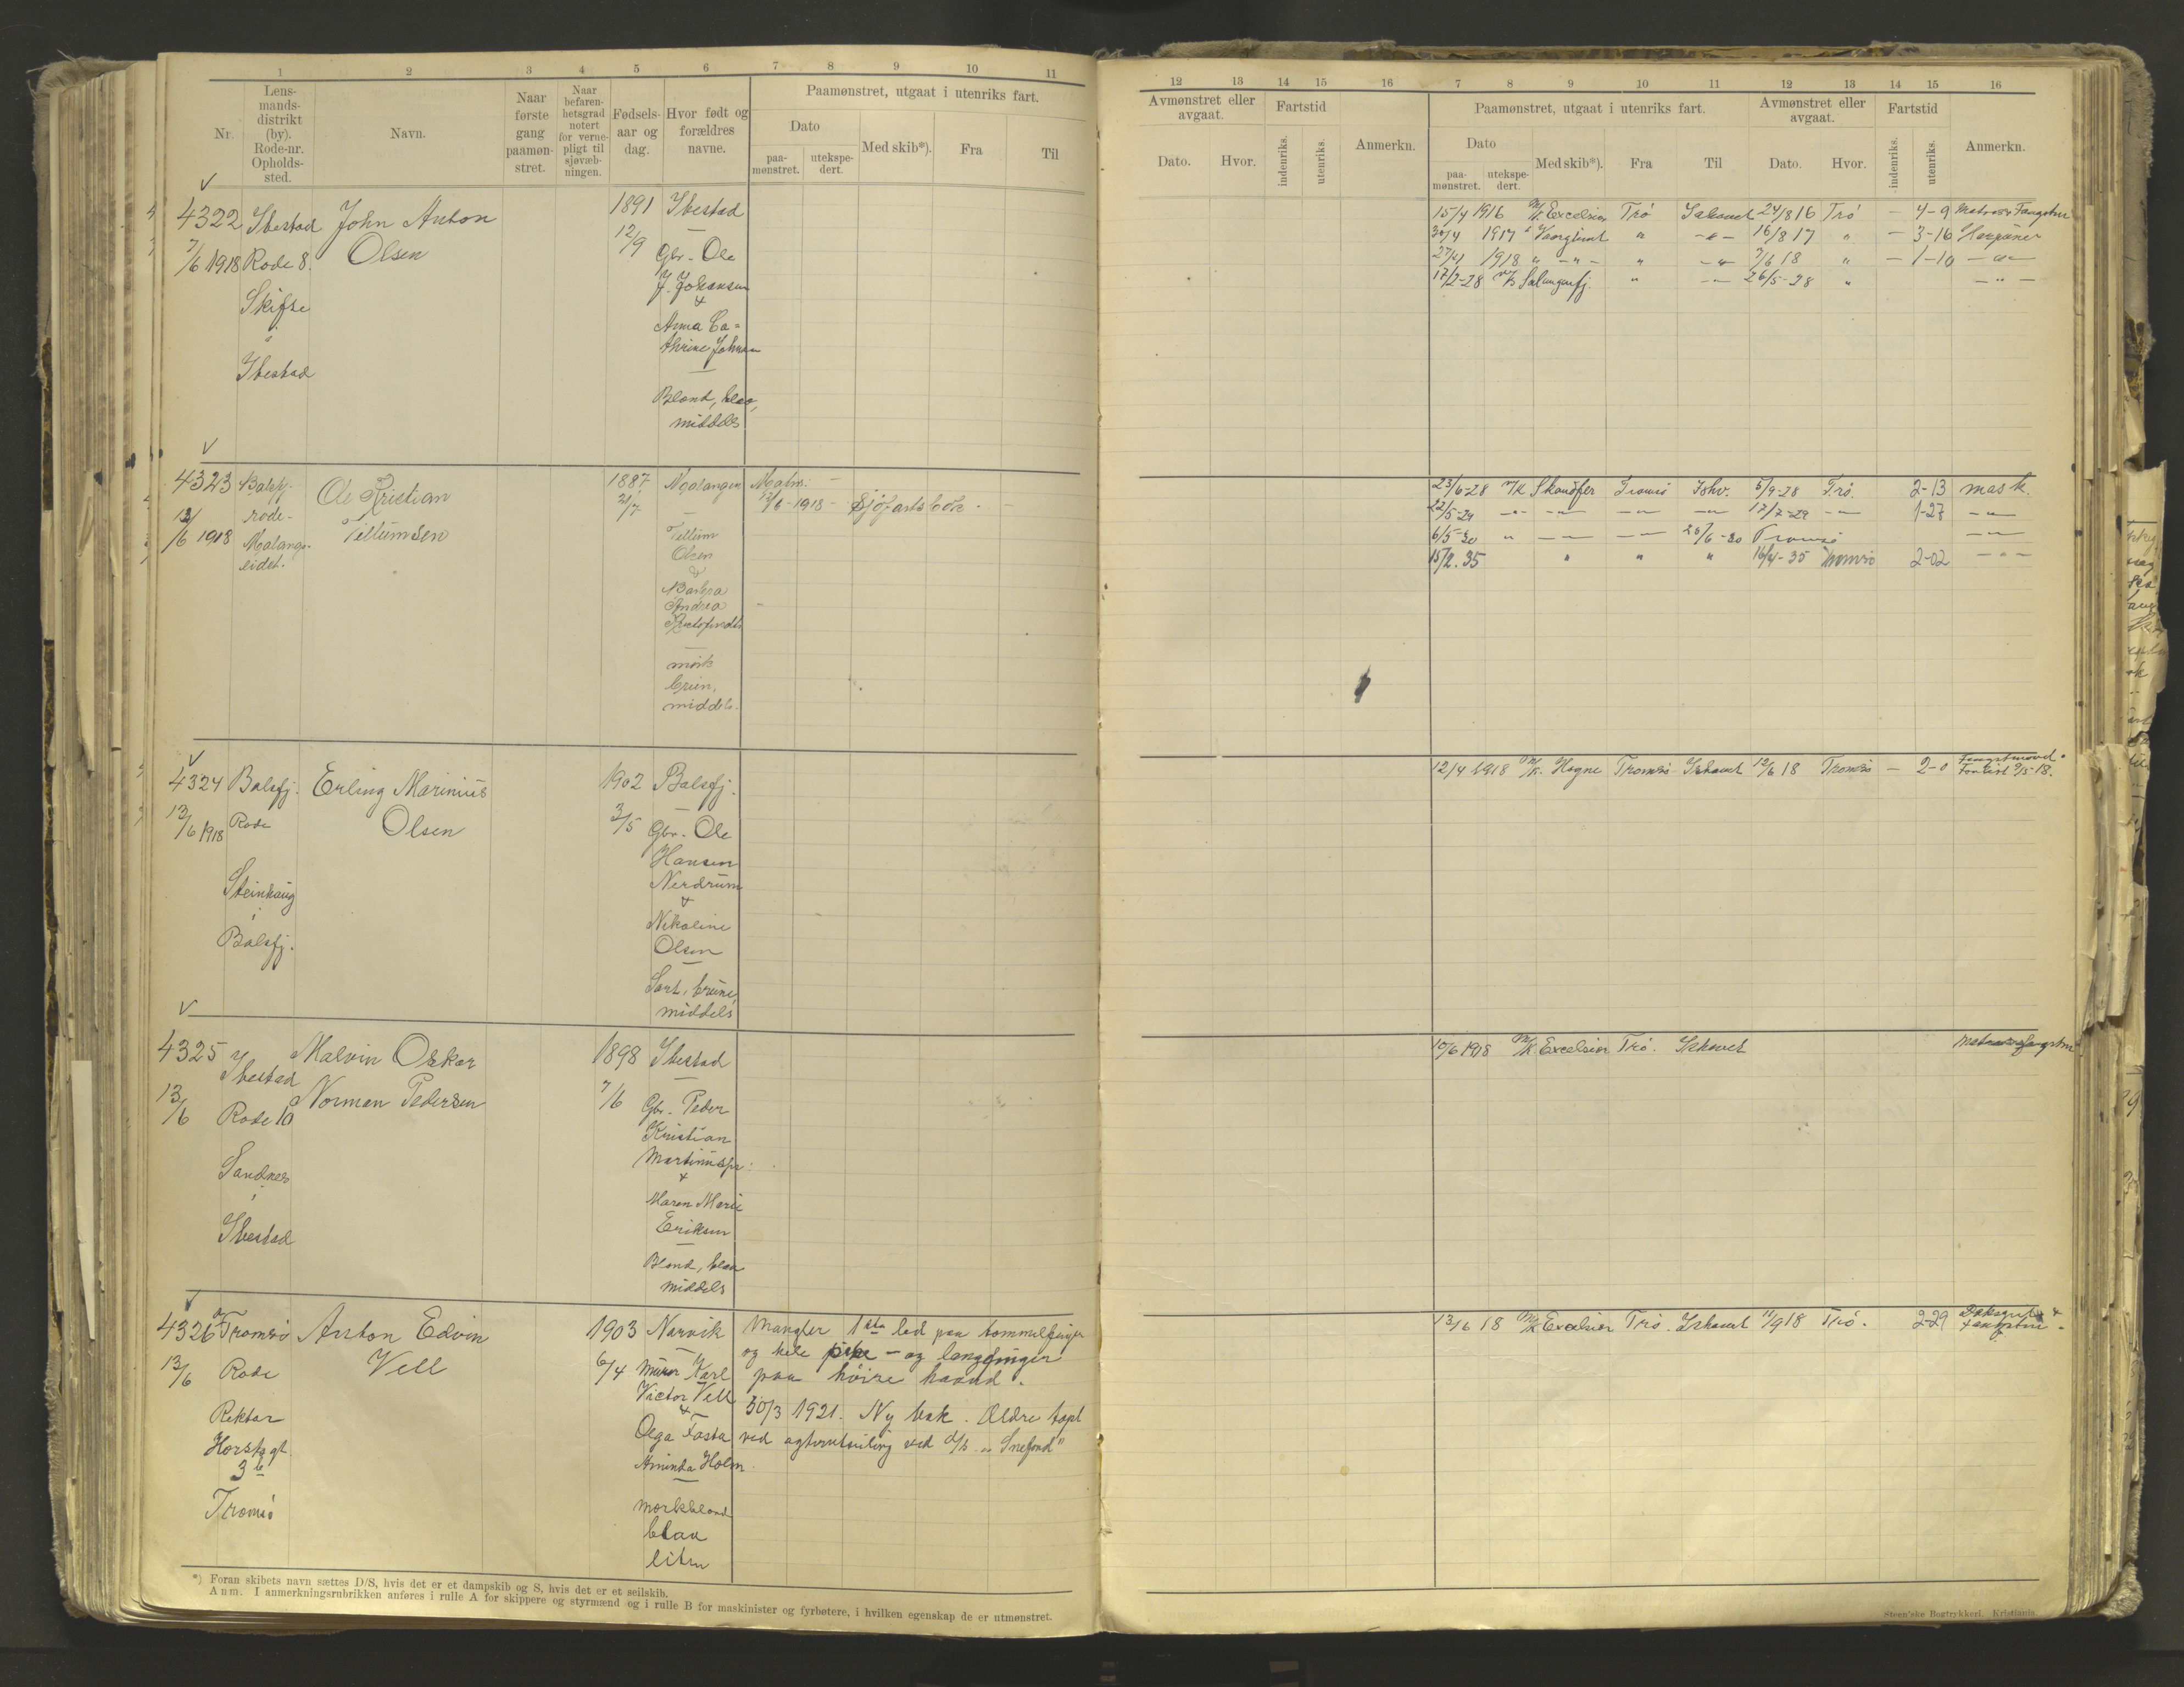 1 2 3 4 5 6 7 8 9 10 11
Nr.
Lens-
mands-
distrikt
(by).
Rode-nr.
Opholds-
sted.
Navn.
Naar
første
gang
paamøn-
stret.
Naar
befaren-
hetsgrad
notert
for verne-
pligt til
sjøvæb-
ningen.
Fødsels-
aar og
dag.
Hvor født og
forældres
navne.
Paamønstret, utgaat i utenriks fart.
Dato
paa-
mønstret.
utekspe-
dert.
Med skib*).
Fra
Til
4322
7/6 1918
Ibestad
Rode 8.
i
Ibestad
John Anton
Olsen
1891
12/9
Ibestad
—
Gbr. Ole
J. Johansen
+
Anna Ca=
thrine Johnsen
—
Blond, blaa,
middels
4323
13/6 1918
Balsfj.
rode-
Malangs-
eidet.
Ole Kristian
Tellumsen
1887
21/7
Malangen
—
Tellum
Olsen
&
Andrea
—
mørk
brun,
middels.
12/6-1918 - Sjøfartsbok.
4324
13/6 1918
Balsfj.
Rode
Steinhaug
i
Balsfj.
Erling Marinius
Olsen
1902
3/5
Balsfj.
—
Gbr. Ole
Hansen
Nerdrum
+
Nikoline
Olsen
—
Sort, brune,
middels
4325
13/6
Ibestad
Rode 10
Sandnes
i
Ibestad
Malvin Oskar
Norman Pedersen
1898
7/6
Ibestad
—
Gbr. Peder
Kristian
+
Maren Marie
Eriksen
—
Blond, blaa
middels
4326
13/6
Tromsø
Rode
Rektor
Horstsgt.
3 b
Tromsø
Anton Edvin
Vell
1903
6/4
Narvik
—
Murer Karl
Victor Vell
+
Olga Fasta
Aminda Holm
—
mørkblond
blaa
liten
Mangler 1ste led paa tommelfinger
og hele peke — og langfinger
paa høire haand.
30/3 1921. Ny bok. Ældre tapt
ved agterutseiling ved d/s "Snefond"
*) Foran skibets navn sættes D/S, hvis det er et dampskib og S, hvis det er et seilskib.
Anm. I anmerkningsrubrikken anføres i rulle A for skippere og styrmænd og i rulle B for maskinister og fyrbøtere, i hvilken egenskap de er utmønstret.
12 13 14 15 16 7 8 9 10 11 12 13 14 15 16
Avmønstret eller
avgaat.
Dato.
Hvor.
Fartstid
indenriks.
utenriks.
Anmerkn.
Paamønstret, utgaat i utenriks fart.
Dato
paa-
mønstret.
utekspe-
dert.
Med skib*).
Fra
Til
Avmønstret eller
avgaat.
Dato.
Hvor.
Fartstid
indenriks.
utenriks.
Anmerkn.
15/4 1916 M/K Excelsior Trø Ishavet 24/8 16 Trø — 4-9 Matros & Fangstm
30/4 1917 " Vaarglimt " —"— 16/8 17 " — 3-16 Harpuner
27/4 1918 " —"— " —"— 7/6 18 " — 1-10 —"—
17/2-28 Salangenfj. " —"— 26/5-28 " —"—
23/6-28 M/K Skandfer Tromsø Ishv. 5/9-28 Trø. 2-13 mask.
22/5-29 —"— —"— —"— —"— 17/7-29 —"— 1-27 —"—
6/5-30 " —"— —"— 26/6-30 Tromsø —"—
15/2.35 " " " 16/4-35 Tromsø 2-02 —"—
12/4 1918 M/K. Hogne Tromsø Ishavet 12/6 18 Tromsø — 2-0 Fangstmand.
10/6 1918 M/K Excelsior Trø. Ishavet Matros & fangstm
13/6 18 M/K Excelsior Trø. Ishavet 11/9 18 Trø. 2-29 Dæksgut &
fangstm.
Steen'ske Bogtrykkeri. Kristiania.